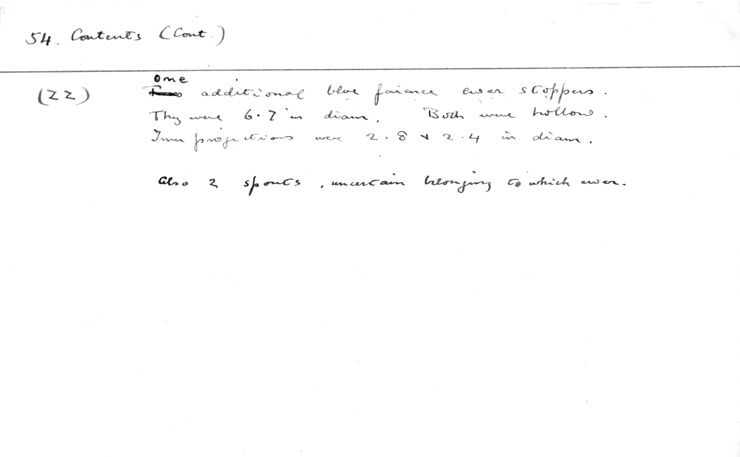 54. Contents (Cont.)
(ZZ)
one
Two additional blue faience ewer stoppers.
They were 6.7 in diam. Both were hollow.
Inner projections were 2.8 & 2.4 in diam.
Also 2 spouts, uncertain belonging to which ewer.